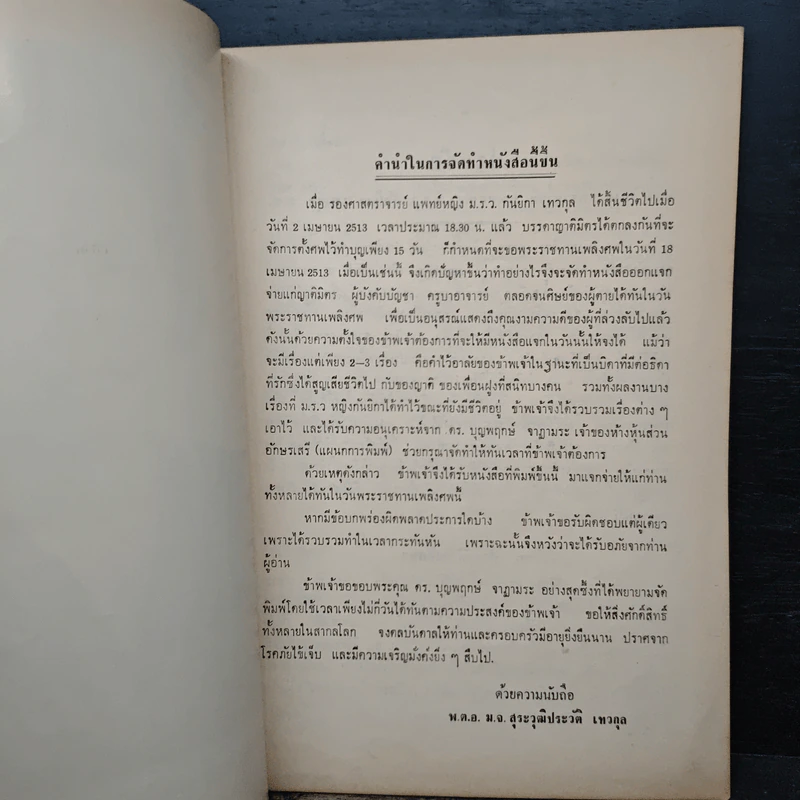 คำนำในการจัดทำหนังสือนี้ขึ้น
เมื่อ รองศาสตราจารย์ แพทย์หญิง ม.ร.ว. กันยิกา เทวกุล ได้สิ้นชีวิตไปเมื่อ
วันที่ 2 เมษายน 2513 เวลาประมาณ 18.30 น. แล้ว บรรดาญาติมิตรได้ตกลงกันที่จะ
จัดการตั้งศพไว้ทำบุญเพียง 15 วัน ก็กำหนดที่จะขอพระราชทานเพลิงศพในวันที่ 18
เมษายน 2513 เมื่อเป็นเช่นนี้ จึงเกิดปัญหาขึ้นว่าทำอย่างไรจึงจะจัดทำหนังสือออกแจก
จ่ายแก่ญาติมิตร ผู้บังคับบัญชา ครูบาอาจารย์ ตลอดจนศิษย์ของผู้ตายได้ทันในวัน
พระราชทานเพลิงศพ เพื่อเป็นอนุสรณ์แสดงถึงคุณงามความดีของผู้ที่ล่วงลับไปแล้ว
ดังนั้นด้วยความตั้งใจของข้าพเจ้าต้องการที่จะให้มีหนังสือแจกในวันนั้นให้จงได้ แม้ว่า
จะมีเรื่องแต่เพียง 2—3 เรื่อง คือคำไว้อาลัยของข้าพเจ้าในฐานะที่เป็นบิดาที่มีต่อธิดา
ที่รักซึ่งได้สูญเสียชีวิตไป กับของญาติ ของเพื่อนฝูงที่สนิทบางคน รวมทั้งผลงานบาง
เรื่องที่ ม.ร.ว หญิงกันยิกาได้ทำไว้ขณะที่ยังมีชีวิตอยู่ ข้าพเจ้าจึงได้รวบรวมเรื่องต่าง ๆ
เอาไว้ และได้รับความอนุเคราะห์จาก ดร. บุญพฤกษ์ จาฏามระ เจ้าของห้างหุ้นส่วน
อักษรเสรี (แผนกการพิมพ์) ช่วยกรุณาจัดทำให้ทันเวลาที่ข้าพเจ้าต้องการ
ด้วยเหตุดังกล่าว ข้าพเจ้าจึงได้รับหนังสือที่พิมพ์ขึ้นนี้ มาแจกจ่ายให้แก่ท่าน
ทั้งหลายได้ทันในวันพระราชทานเพลิงศพนี้
หากมีข้อบกพร่องผิดพลาดประการใดบ้าง ข้าพเจ้าขอรับผิดชอบแต่ผู้เดียว
เพราะได้รวบรวมทำในเวลากระทันหัน เพราะฉะนั้นจึงหวังว่าจะได้รับอภัยจากท่าน
ผู้อ่าน
ข้าพเจ้าขอขอบพระคุณ ดร. บุญพฤกษ์ จาฏามระ อย่างสุดซึ้งที่ได้พยายามจัด
พิมพ์โดยใช้เวลาเพียงไม่กี่วันได้ทันตามความประสงค์ของข้าพเจ้า ขอให้สิ่งศักดิ์สิทธิ์
ทั้งหลายในสากลโลก จงดลบันดาลให้ท่านและครอบครัวมีอายุยั่งยืนนาน ปราศจาก
โรคภัยไข้เจ็บ และมีความเจริญมั่งคั่งยิ่ง ๆ สืบไป.
ด้วยความนับถือ
พ.ต.อ. ม.จ. สุระวุฒิประวัติ เทวกุล